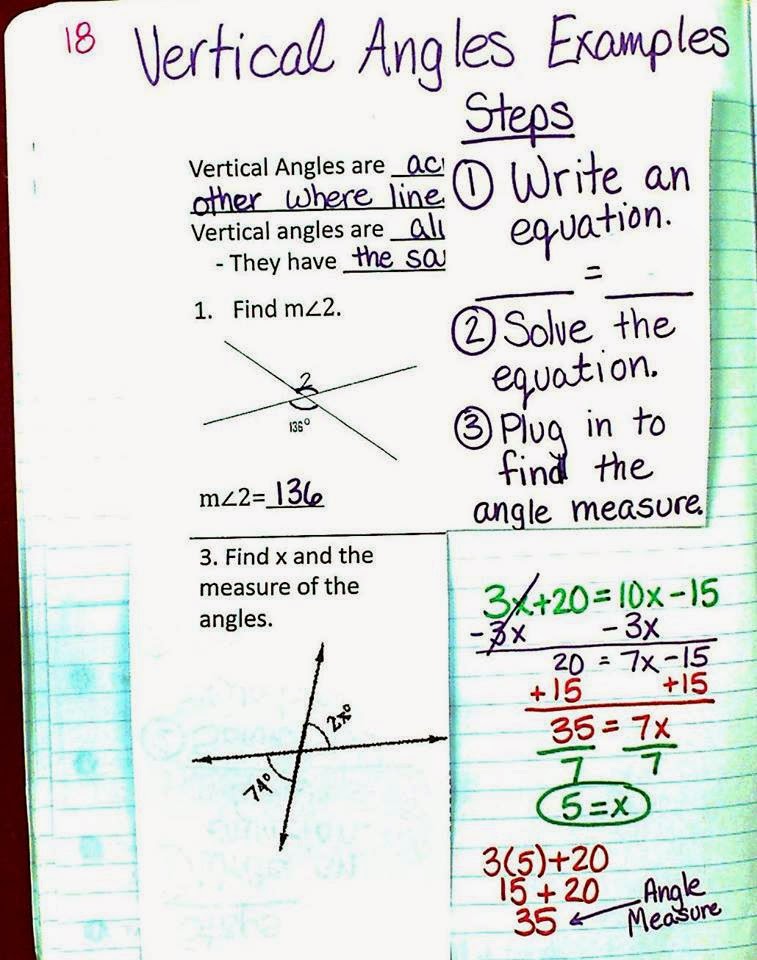 18
Vertical Angles Examples
Vertical Angles are
other where line
Vertical angles are
- They have the
1. Find m∠2.
2
136°
m∠2= 136
3. Find x and the
measure of the
angles.
2x°
74°
Steps
① Write an
equation.
___ = ___
② Solve the
equation.
③ Plug in to
find the
angle measure.
3x+20=10x-15
-3x -3x
20 = 7x-15
+15 +15
35 = 7x
7 7
5=x
3(5)+20
15+20
35 ← Angle
Measure